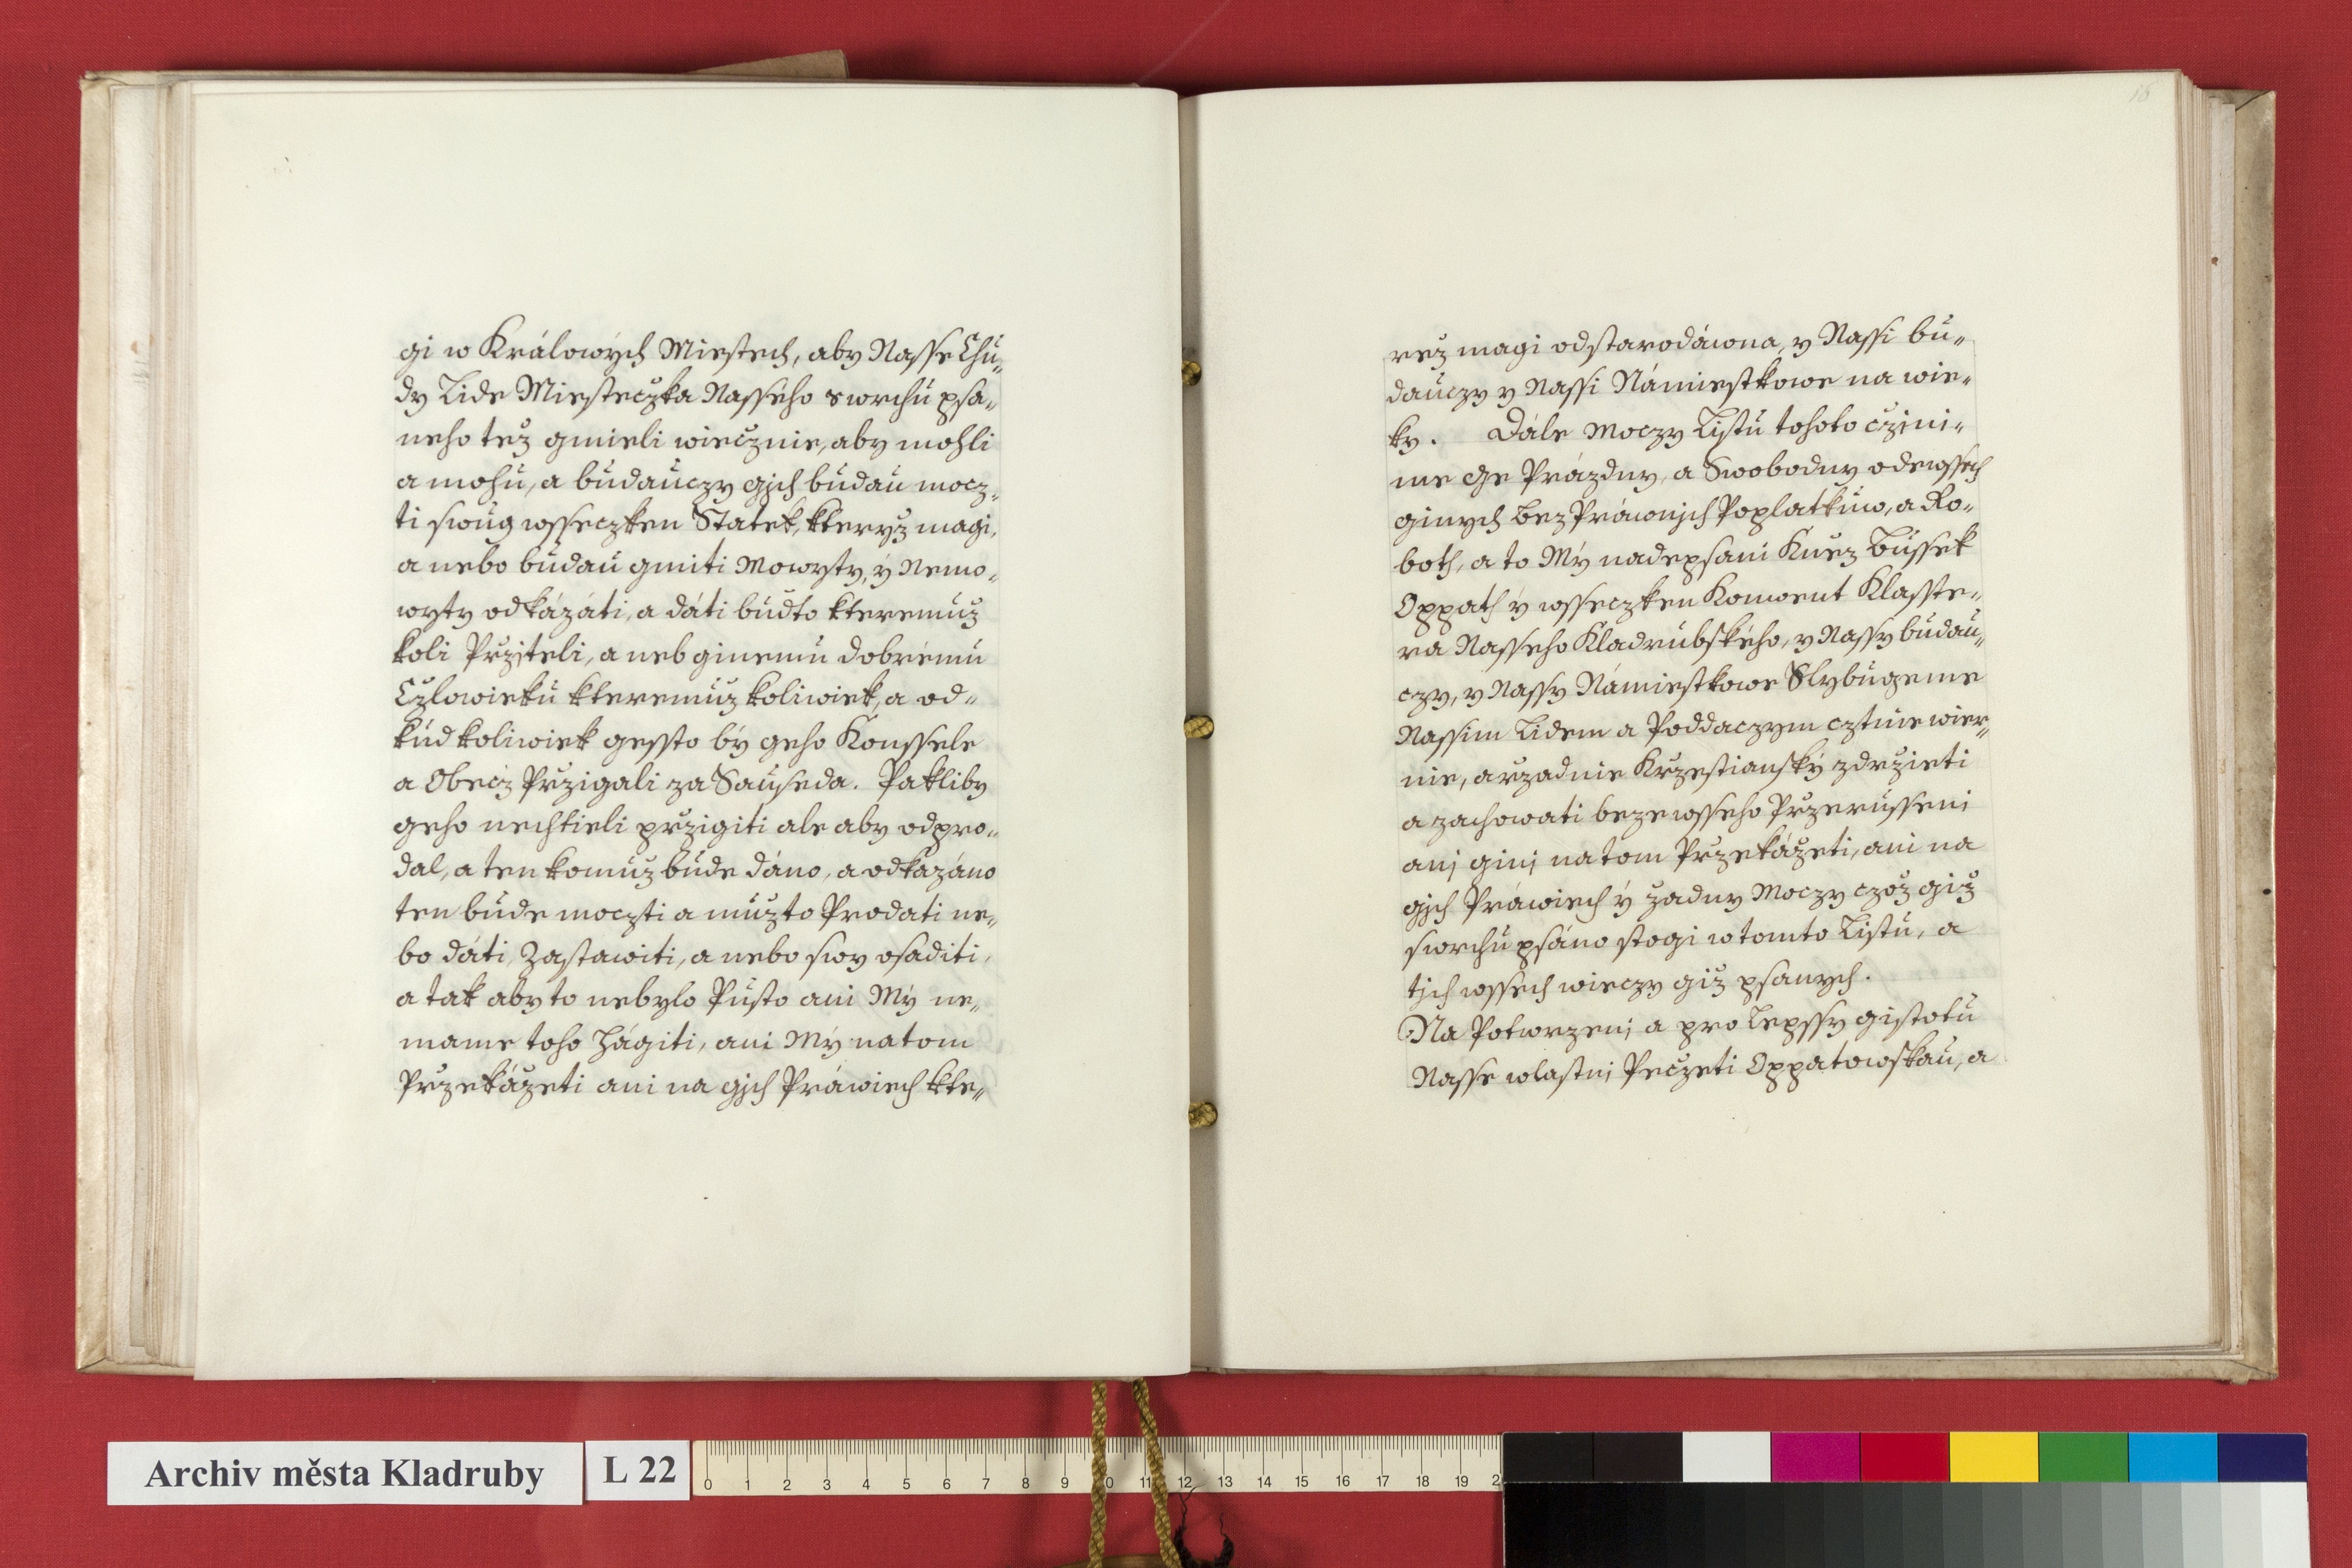 gi w Králowých Miestech, aby Nasse Chu„
dy Lide Miesteczka Nasseho swrchu psa„
neho tež gmieli wiecžnie, aby mohli
a mohu, a budauczy gjch budau mocz„
ti swug wsseczken Statek, kteryž magi,
a nebo budau gmiti Mowyty, ý Nemo„
wyty odkázáti, a dáti budto kteremuž
koli Pržiteli, a neb ginemu dobrému
Cžlowieku kteremuž koliwiek, a od„
kud koliwiek gessto bý geho Konssele
a Obecž Pržigali za Sauseda. Pakliby
geho nechtieli pržigiti ale aby odpro„
dal, a ten komuž bude dáno, a odkazáno
ten bude moczti a muž to Prodati ne„
bo dáti, Zastawiti, a nebo swy osaditi,
a tak aby to nebylo Pusto ani Mý ne„
mame toho Hágiti, ani Mý na tom
Pržekážeti ani na gjch Práwiech kte„
16
rež magi odstarodáwna, y Nassi bu„
dauczy y Nassi Námiestkowe na wie„
ky. Dále Moczy Listu tohoto cžini„
me Ge Prázdny, a Swobodny odewssech
ginych bez Práwnjch Poplatkuw, a Ro„
both, a to Mý nadepsani Knez Bussek
Oppath ý wsseczken Konwent Klasste„
ra Nasseho Kladrubského, y Nassy budau„
czy, y Nassy Námiestkowe Slybugeme
Nassim Lidem a Poddaczym cztnie wier„
nie, a ržadnie Kržestiansky zdržieti
a zachowati beze wsseho Pržerussenj
anj ginj na tom Pržekážeti, ani na
gjch Práwiech ý žadny Moczy czož giž
swrchu psáno stogi w tomto Listu, a
tjch wssech wieczy giž psanych.
Na Potwrzenj a pro Lepssy gistotu
Nasse wlastnj Pecžeti Oppatowskau, a
Archiv města Kladruby
L 22
0 1 2 3 4 5 6 7 8 9 10 11 12 13 14 15 16 17 18 19 2